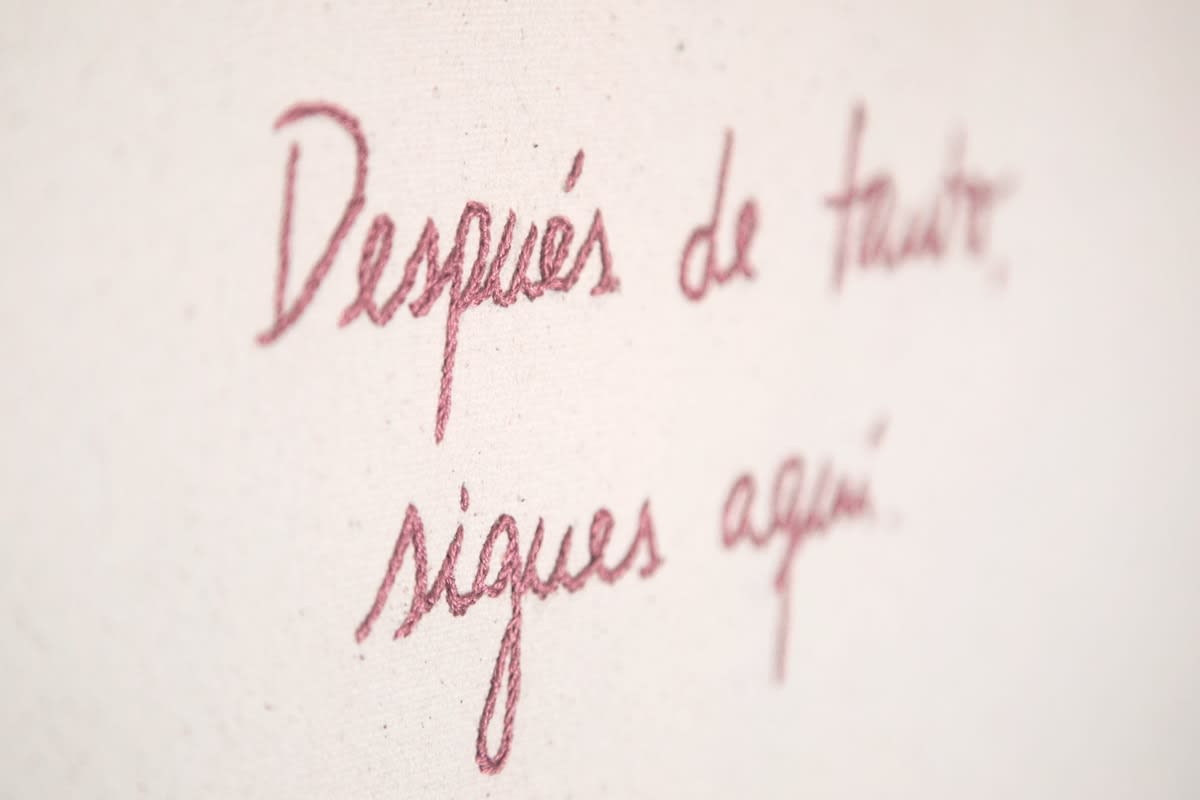 Después de tanto,
sigues aquí.